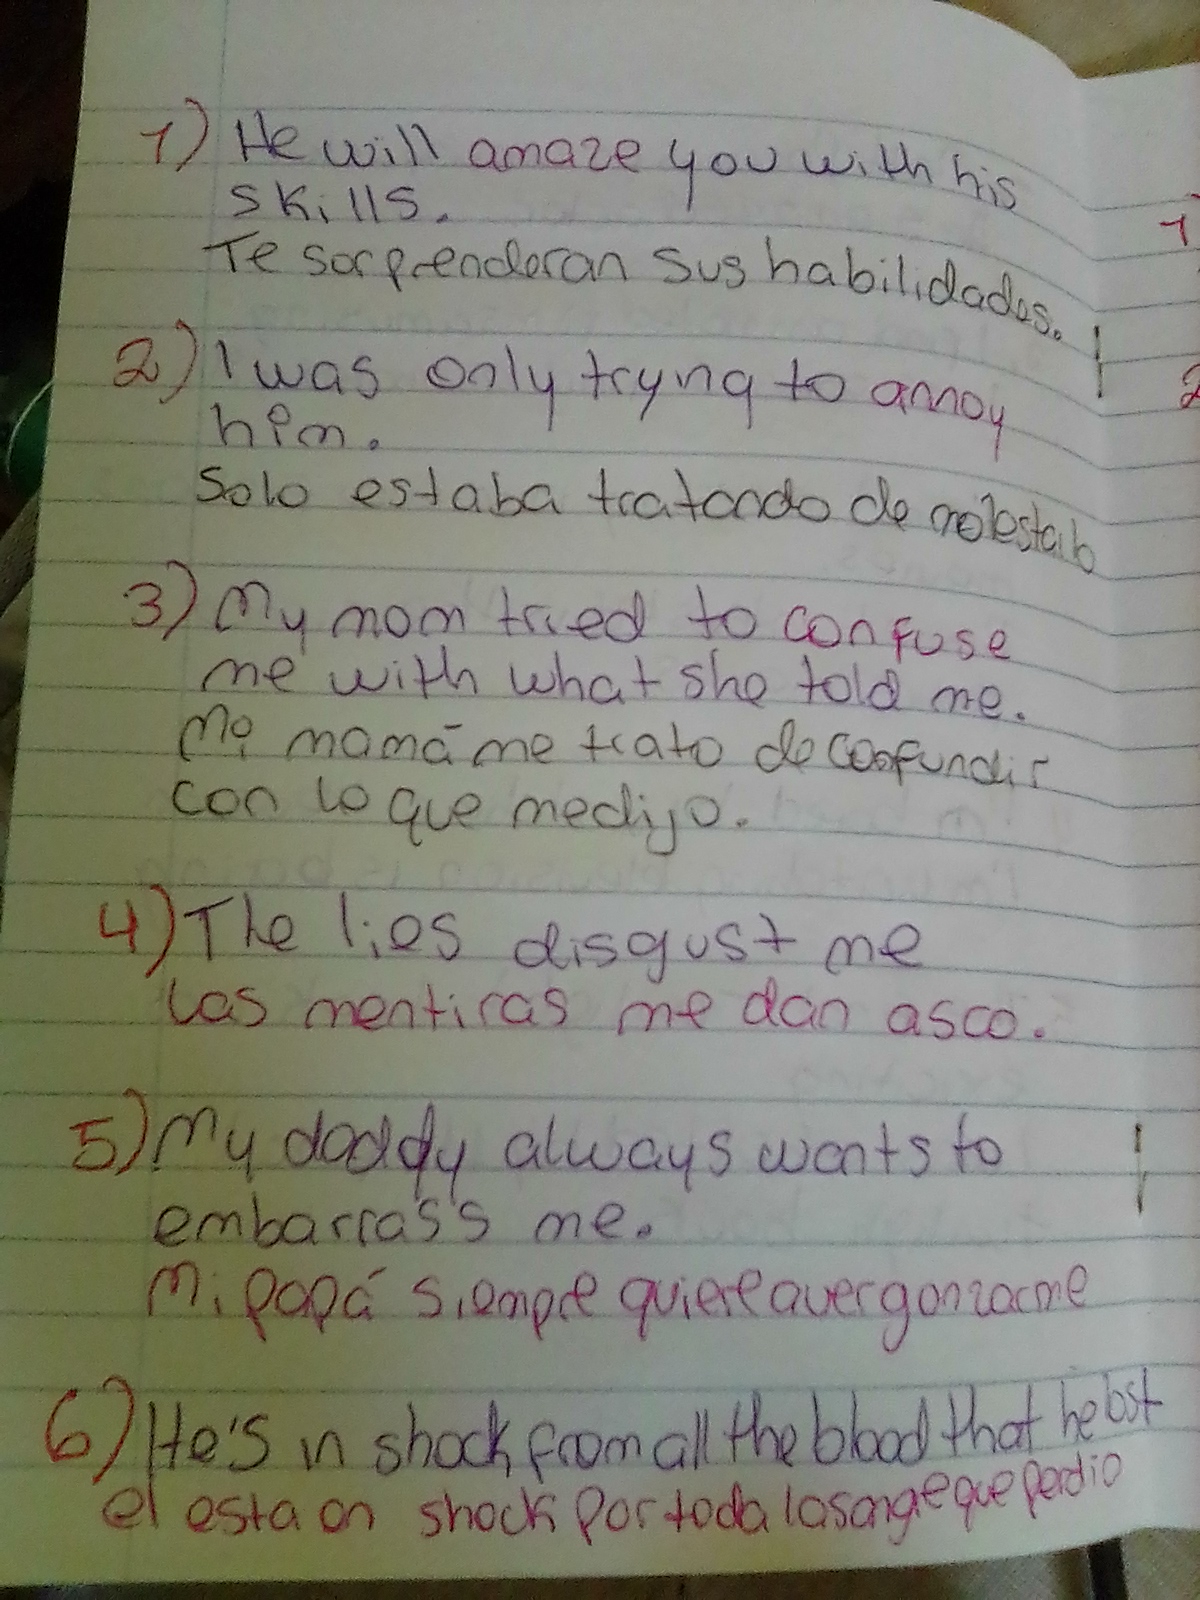 1) He will amaze you with his
skills.
Te sorprenderan sus habilidades.
2) I was only trying to annoy
him.
Solo estaba tratando de molestarlo
3) My mom tried to confuse
me with what she told me.
Mi mamá me trato de confundir
con lo que me dijo.
4) The lies disgust me
Las mentiras me dan asco.
5) My daddy always wants to
embarrass me.
Mi papá siempre quiere avergonzarme
6) He's in shock from all the blood that he lost
el esta en shock por toda la sangre que perdio
1)
2